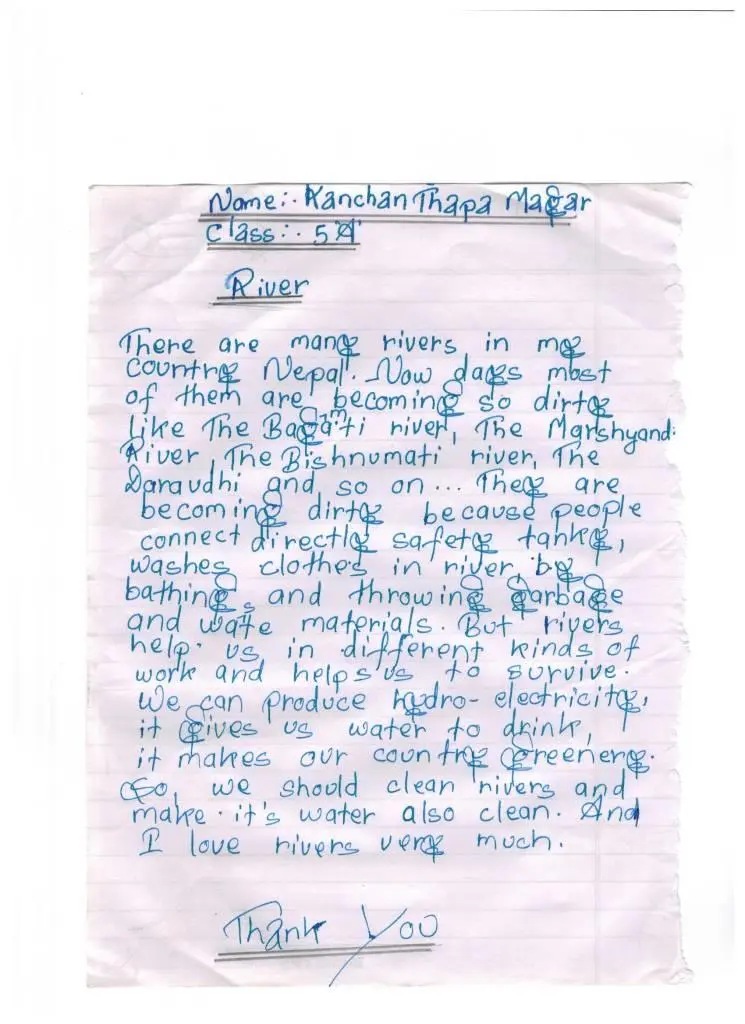 Name:- Kanchan Thapa Magar
Class:- 5 'A'
River
There are many rivers in my
country Nepal. Now days most
of them are becoming so dirty
like The Bagmati river, The Marshyandi
River, The Bishnumati river, The
Daraudhi and so on... They are
becoming dirty because people
connect directly safety tanky,
washes clothes in river, by
bathing, and throwing garbage
and waste materials. But rivers
help us in different kinds of
work and helps us to survive.
We can produce hydro-electricity,
it gives us water to drink,
it makes our country greenery.
So, we should clean rivers and
make it's water also clean. And
I love rivers very much.
Thank You